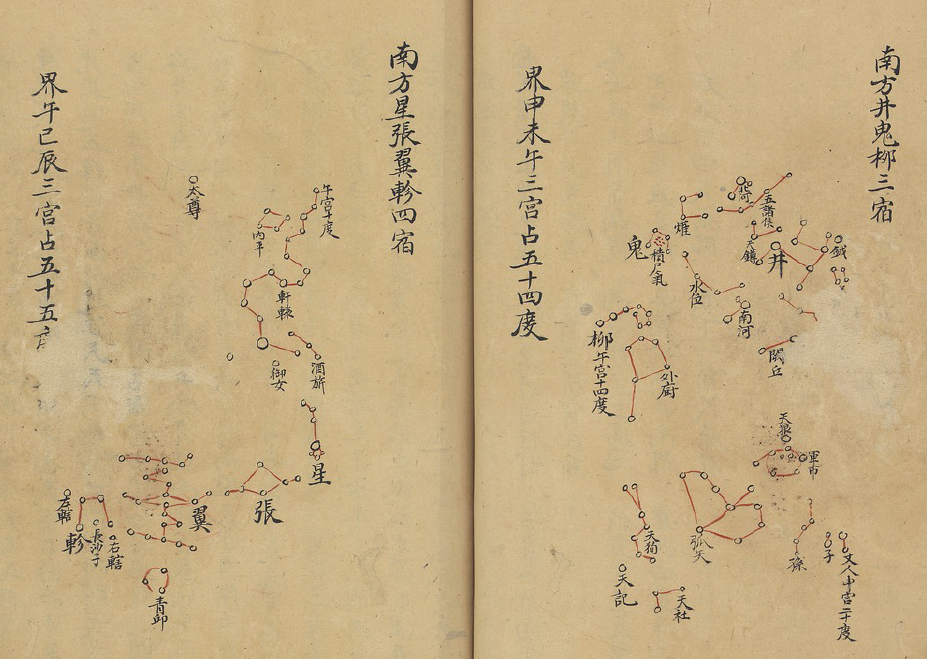 南方井鬼柳三宿
北河
五諸侯
天鐏
井
鉞
爟
鬼
積尸氣
水位
南河
闕丘
柳
午宮十四度
外廚
天狼
軍市
弧矢
天狗
天記
天社
孫
子
丈人中宮二十度
界申未午三宮占五十四度
南方星張翼軫四宿
午宮子度
內平
太尊
軒轅
酒旂
御女
星
張
翼
左轄
軫
長沙子
右轄
青邱
界午巳辰三宮占五十五度